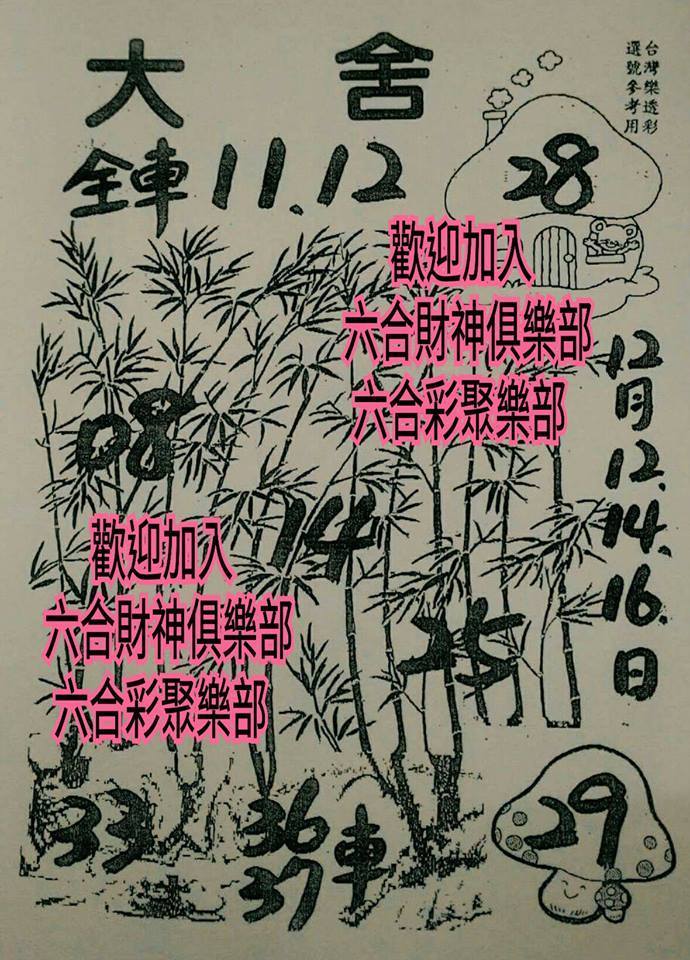 大舍
台灣樂透彩
選號參考用
全車11.12
28
歡迎加入
六合財神俱樂部
六合彩聚樂部
12月12.14.16.日
08
14
歡迎加入
六合財神俱樂部
六合彩聚樂部
25
33
36
37
車
29